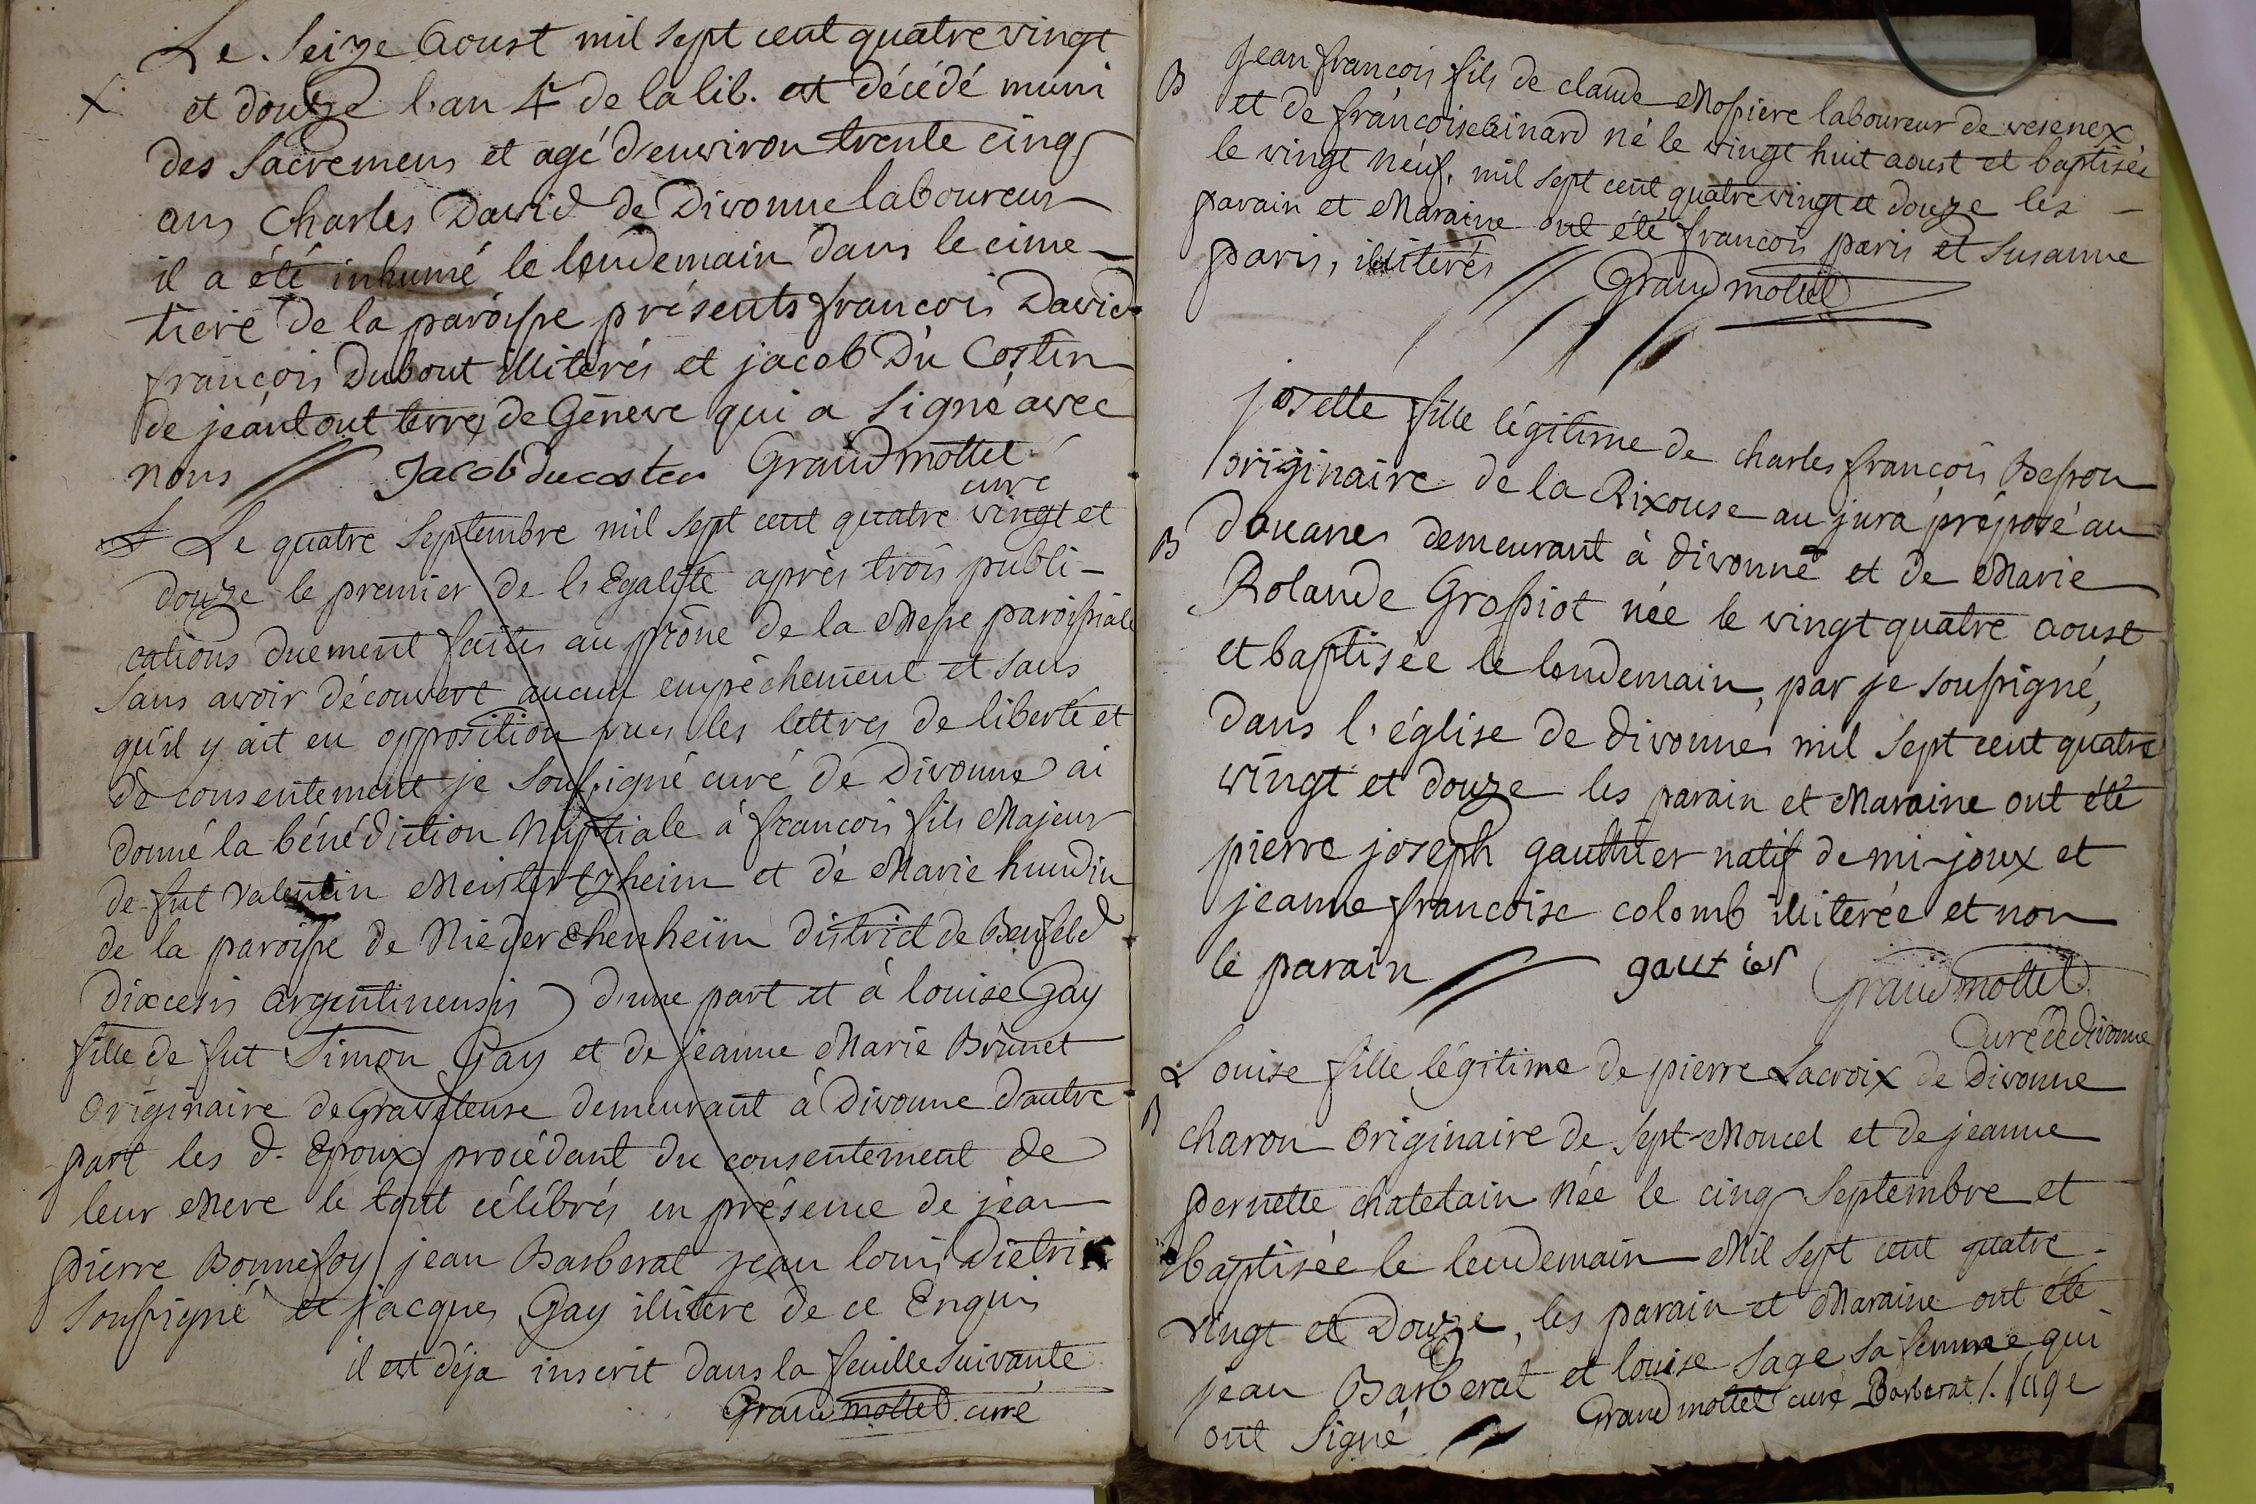 Le Seize Aoust mil sept cent quatre vingt
et douze l'an 4e de la lib. est décédé muni
des Sacremens et agé d'environ trente cinq
ans Charles David de Divonne laboureur
il a été inhumé le lendemain dans le cime-
tiere de la paroisse présents francois David
françois Dubout illiterés et jacob Du Costen
de jeantout terre de Géneve qui a signé avec
nous Jacob ducosten Grandmottet
curé
Le quatre Septembre mil sept cent quatre vingt et
douze le premier de l'Egalité après trois publi-
cations duement faites au prône de la Messe paroissiale
sans avoir découvert aucun empêchement et sans
qu'il y ait eu opposition vues les lettres de liberté et
de consentement je soussigné curé de Divonne ai
donné la bénédiction Nuptiale à francois fils Majeur
de fut Valentin Meistertzheim et de Marie hundin
de la paroisse de Niederehenheim district de Benfeld
Diocesis argentinensis d'une part et à louise Gay
fille de fut Simon Gay et de jeanne Marie Brunet
Originaire de Graveleuse demeurant à Divonne d'autre
part les d. Epoux procédant du consentement de
leur Mere le tout célébrés en présence de jean
pierre Bonnefoy jean Barberat jean louis Dietrik
soussigné et jacques Gay illitere de ce Enquis
il est déja inscrit dans la feuille suivante
Grandmottet curé
B Jean françois fils de claude Mossiere laboureur de vesenex
et de françoise binard né le vingt huit aoust et baptisée
le vingt neuf, mil sept cent quatre vingt et douze les -
parain et Maraine ont été francois paris et Susanne
paris, illiterés Grandmottet
josette fille légitime de charles francois Besson
originaire de la Rixouse au jura préposé au
B Douanes demeurant à divonne et de Marie
Rolande Grossiot née le vingt quatre aoust
et baptisée le lendemain, par je soussigné,
dans l'église de divonne mil sept cent quatre
vingt et douze les parain et Maraine ont été
pierre joseph gauthier natif de mi-joux et
jeanne francoise colomb illiterée et non
le parain gautier Grandmottet
Curé de divonne
Louise fille légitime de pierre Lacroix de Divonne
B charon originaire de Sept-Moncel et de jeanne
pernette chatelain Née le cinq Septembre et
baptisée le lendemain Mil sept cent quatre -
vingt et Douze, les parain et Maraine ont été
jean Barberat et louise Sage sa femme qui
ont signé Grandmottet curé Barberat l. sage